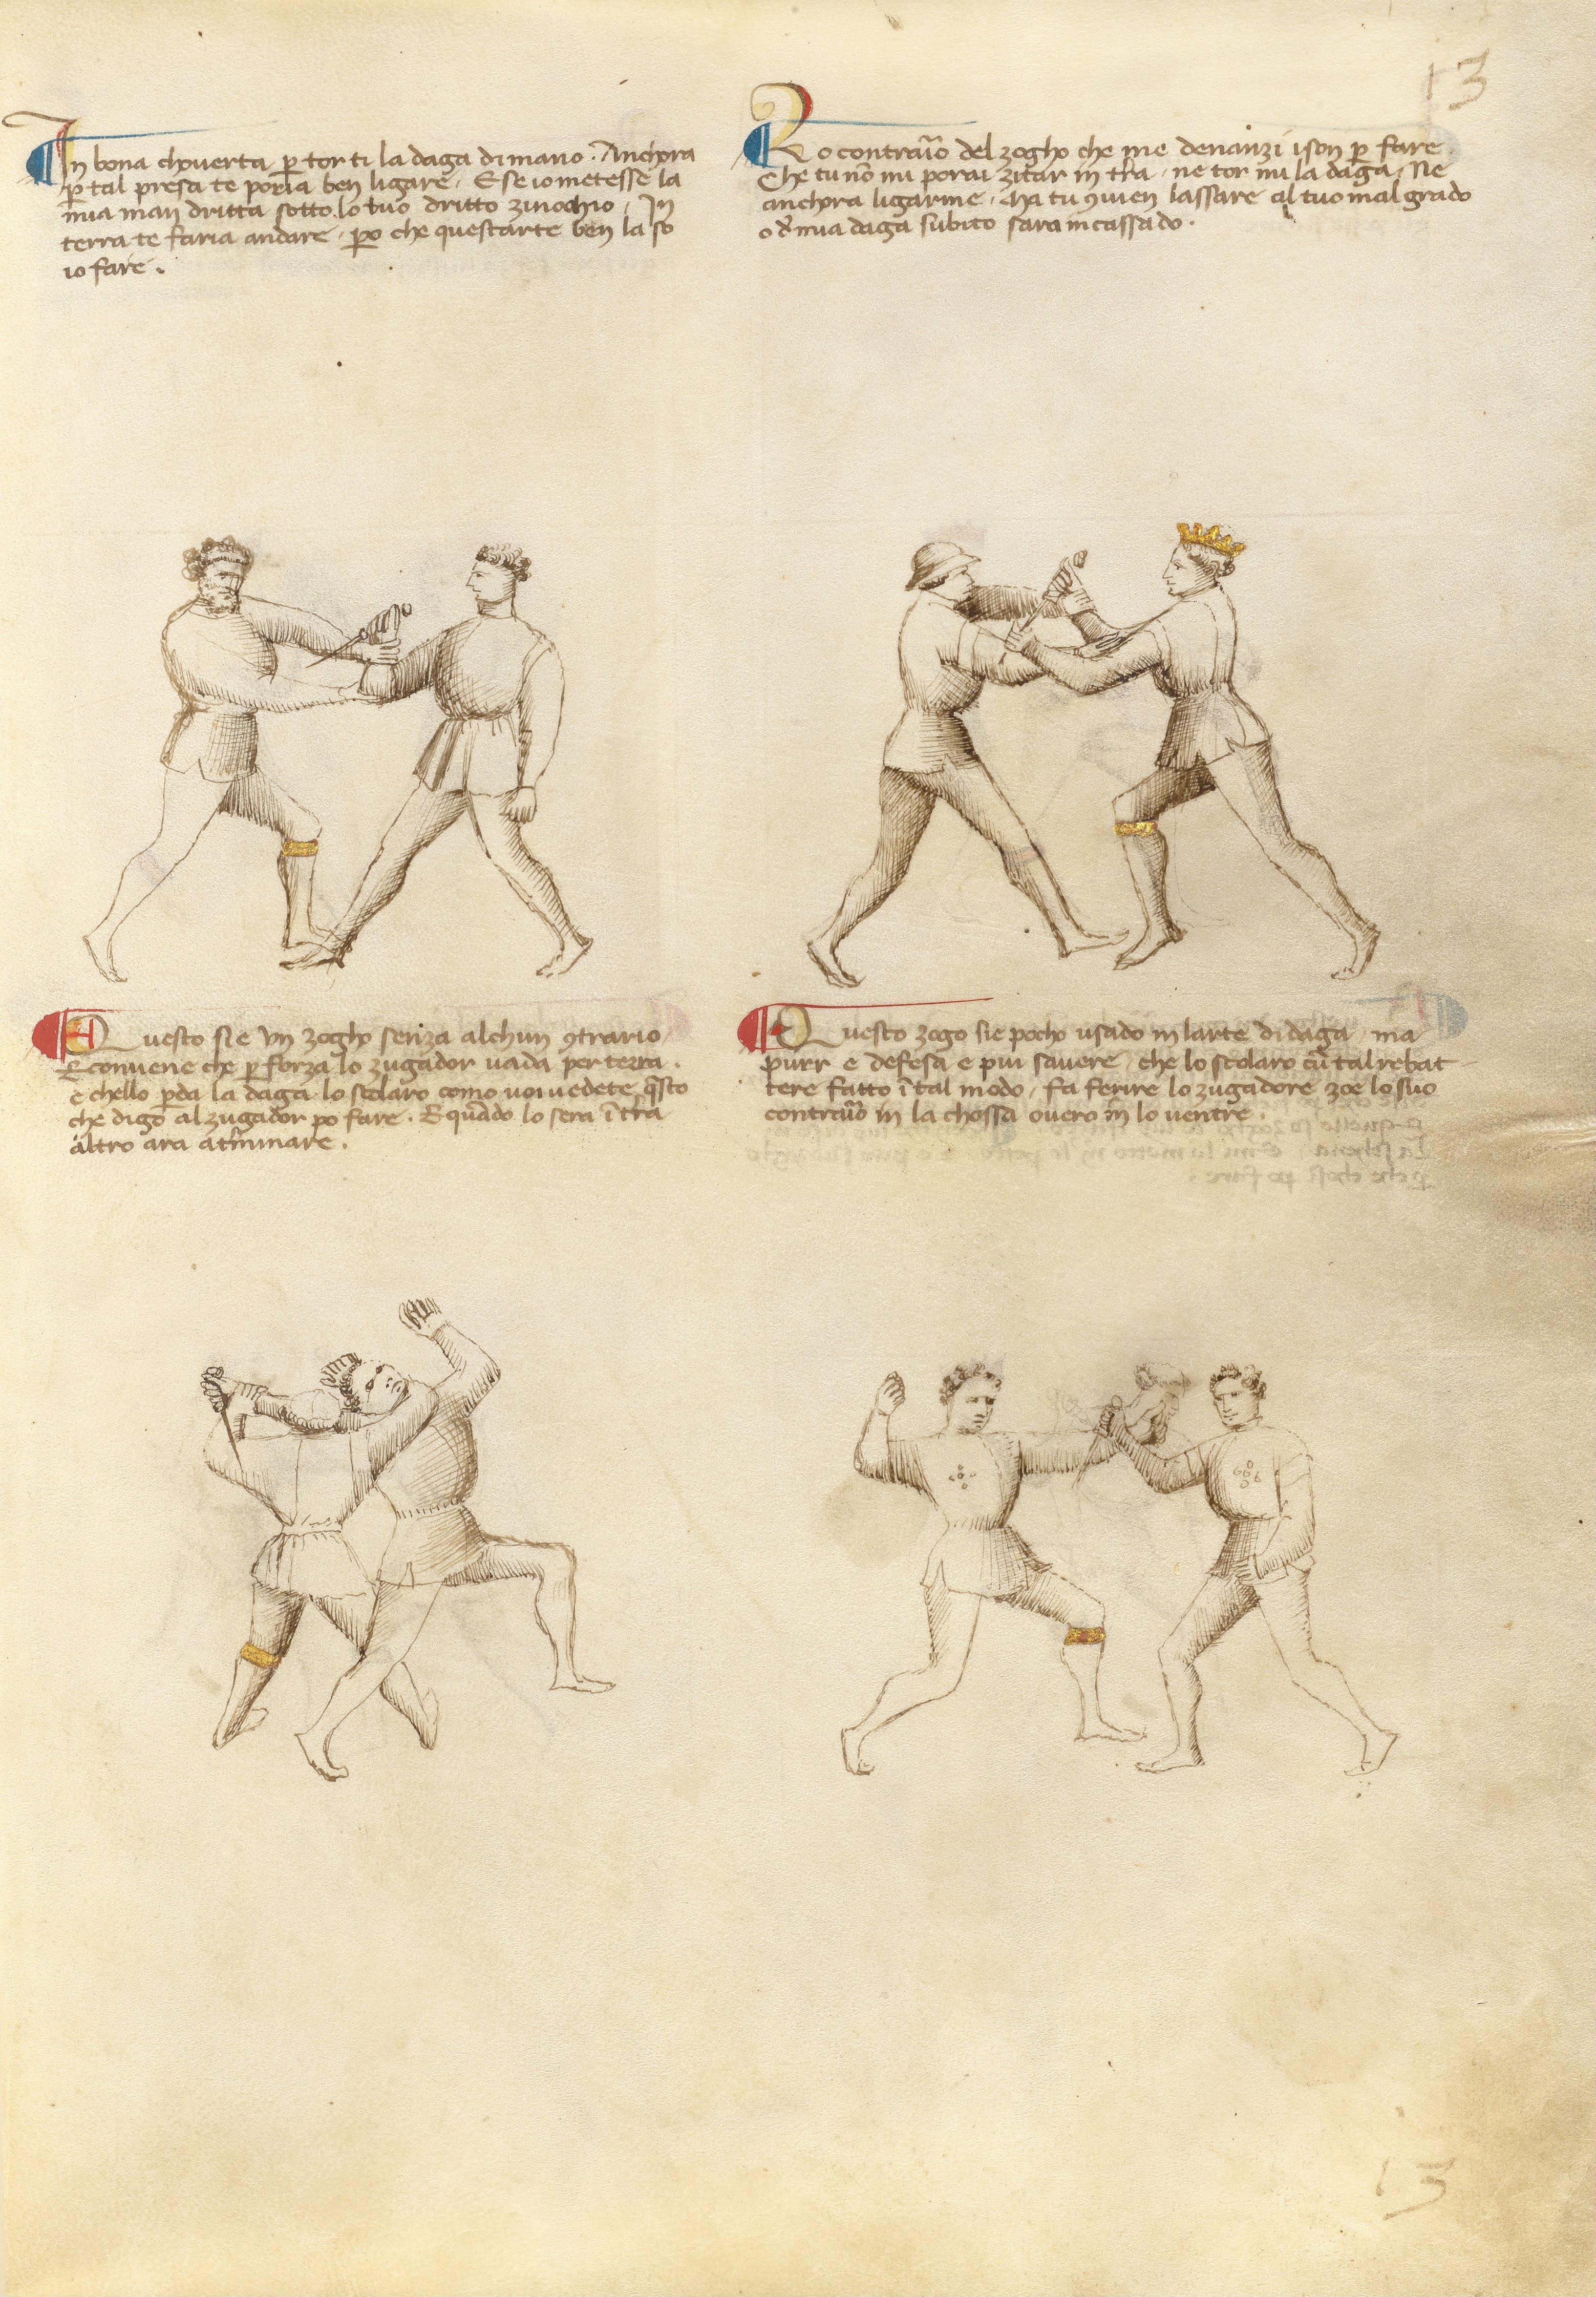 13
In bona chouerta per torti la daga di mano. Anchora
p̱ tal presa te poria ben ligare, E se io metesse la
mia man dritta sotto lo tuo dritto zinochio, In
terra te faria andare, p̱o che questarte ben la so
io fare.
Lo contraio del zogho che me denanzi i son p̱ fare
Che tu nō mi porai zitar in tr̄a, ne tor mi la daga, Ne
anchora ligarme, Ma tu ꝯuien lassare al tuo mal grado
o d̄ mia daga subito sarai incassado.
Questo sie un zogho senza alchun ꝯtrario
E conuene che p̱ forza lo zugador uada per terra.
e chello p̱da la daga. lo scolaro como uoi uedete q̄sto
che digo al zugador po fare. E quādo lo sera ī tr̄a
altro ara a tr̄minare.
Questo zogo sie pocho usado in larte di daga, ma
purr e defesa e piu sauere, che lo scolaro cū tal rebat
tere fatto ī tal modo, fa ferire lo zugadore zoe lo suo
contraio in la chossa ouero in lo uentre.
13